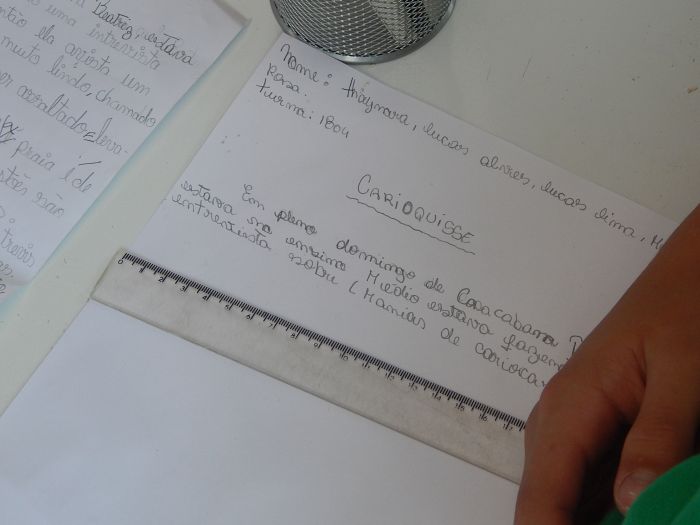 Beatriz, estava
uma intrevista
ela assista um
muito lindo, chamado
assaltado, e leva-
praia é de
são
Nome: Thaynara, lucas alvres, lucas lima,
Rosa.
turma: 1804
CARIOQUISSE
Em pleno domingo de Copacabana
estava no ensino Médio estava fazen
entrevista sobre (Manias de carioca
0 1 2 3 4 5 6 7 8 9 10 11 12 13 14 15 16 17